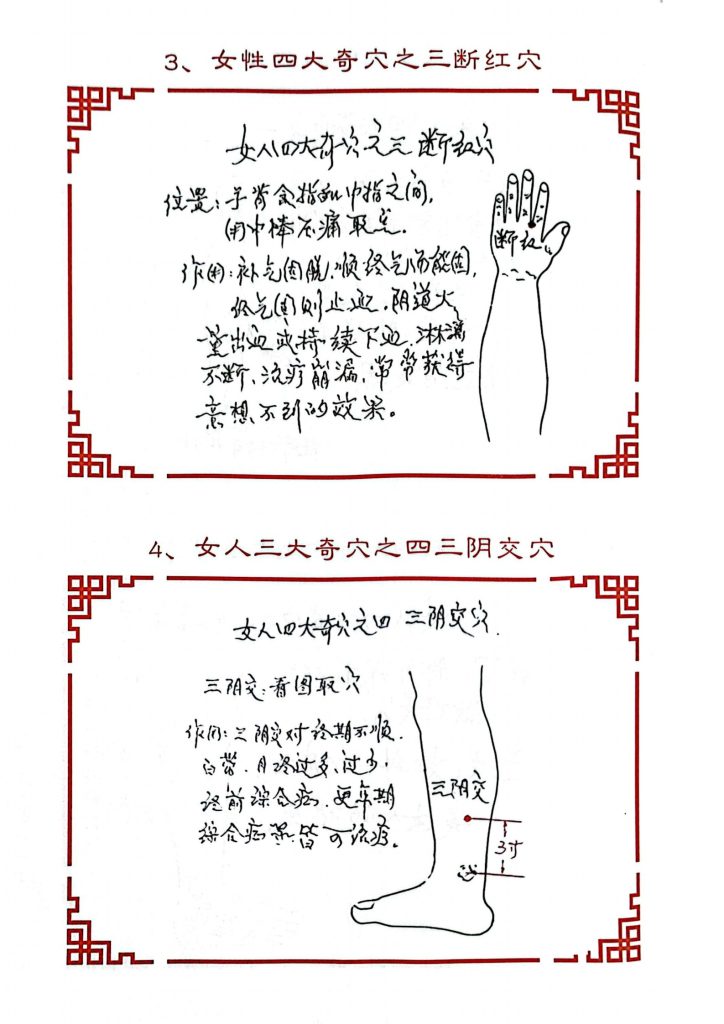 3、女性四大奇穴之三断红穴
女人四大奇穴之三 断红穴
位置：手背食指和中指之间，
用巾棒压痛取点.
断红
作用：补气固脱，顺经气而能固，
经气固则止血，阴道大
量出血或持续下血，淋漓
不断，治疗崩漏，常常获得
意想不到的效果。
4、女人三大奇穴之四三阴交穴
女人四大奇穴之四 三阴交穴.
三阴交：看图取穴
作用：三阴交对经期不顺.
白带.月经过多、过少，
经前综合病.更年期
综合病 皆可治疗。
三阴交
3寸